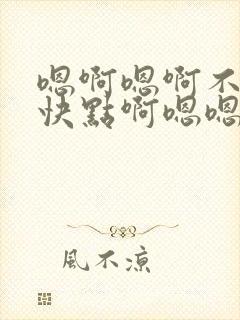 嗯啊嗯啊不
快點啊嗯嗯
風不涼